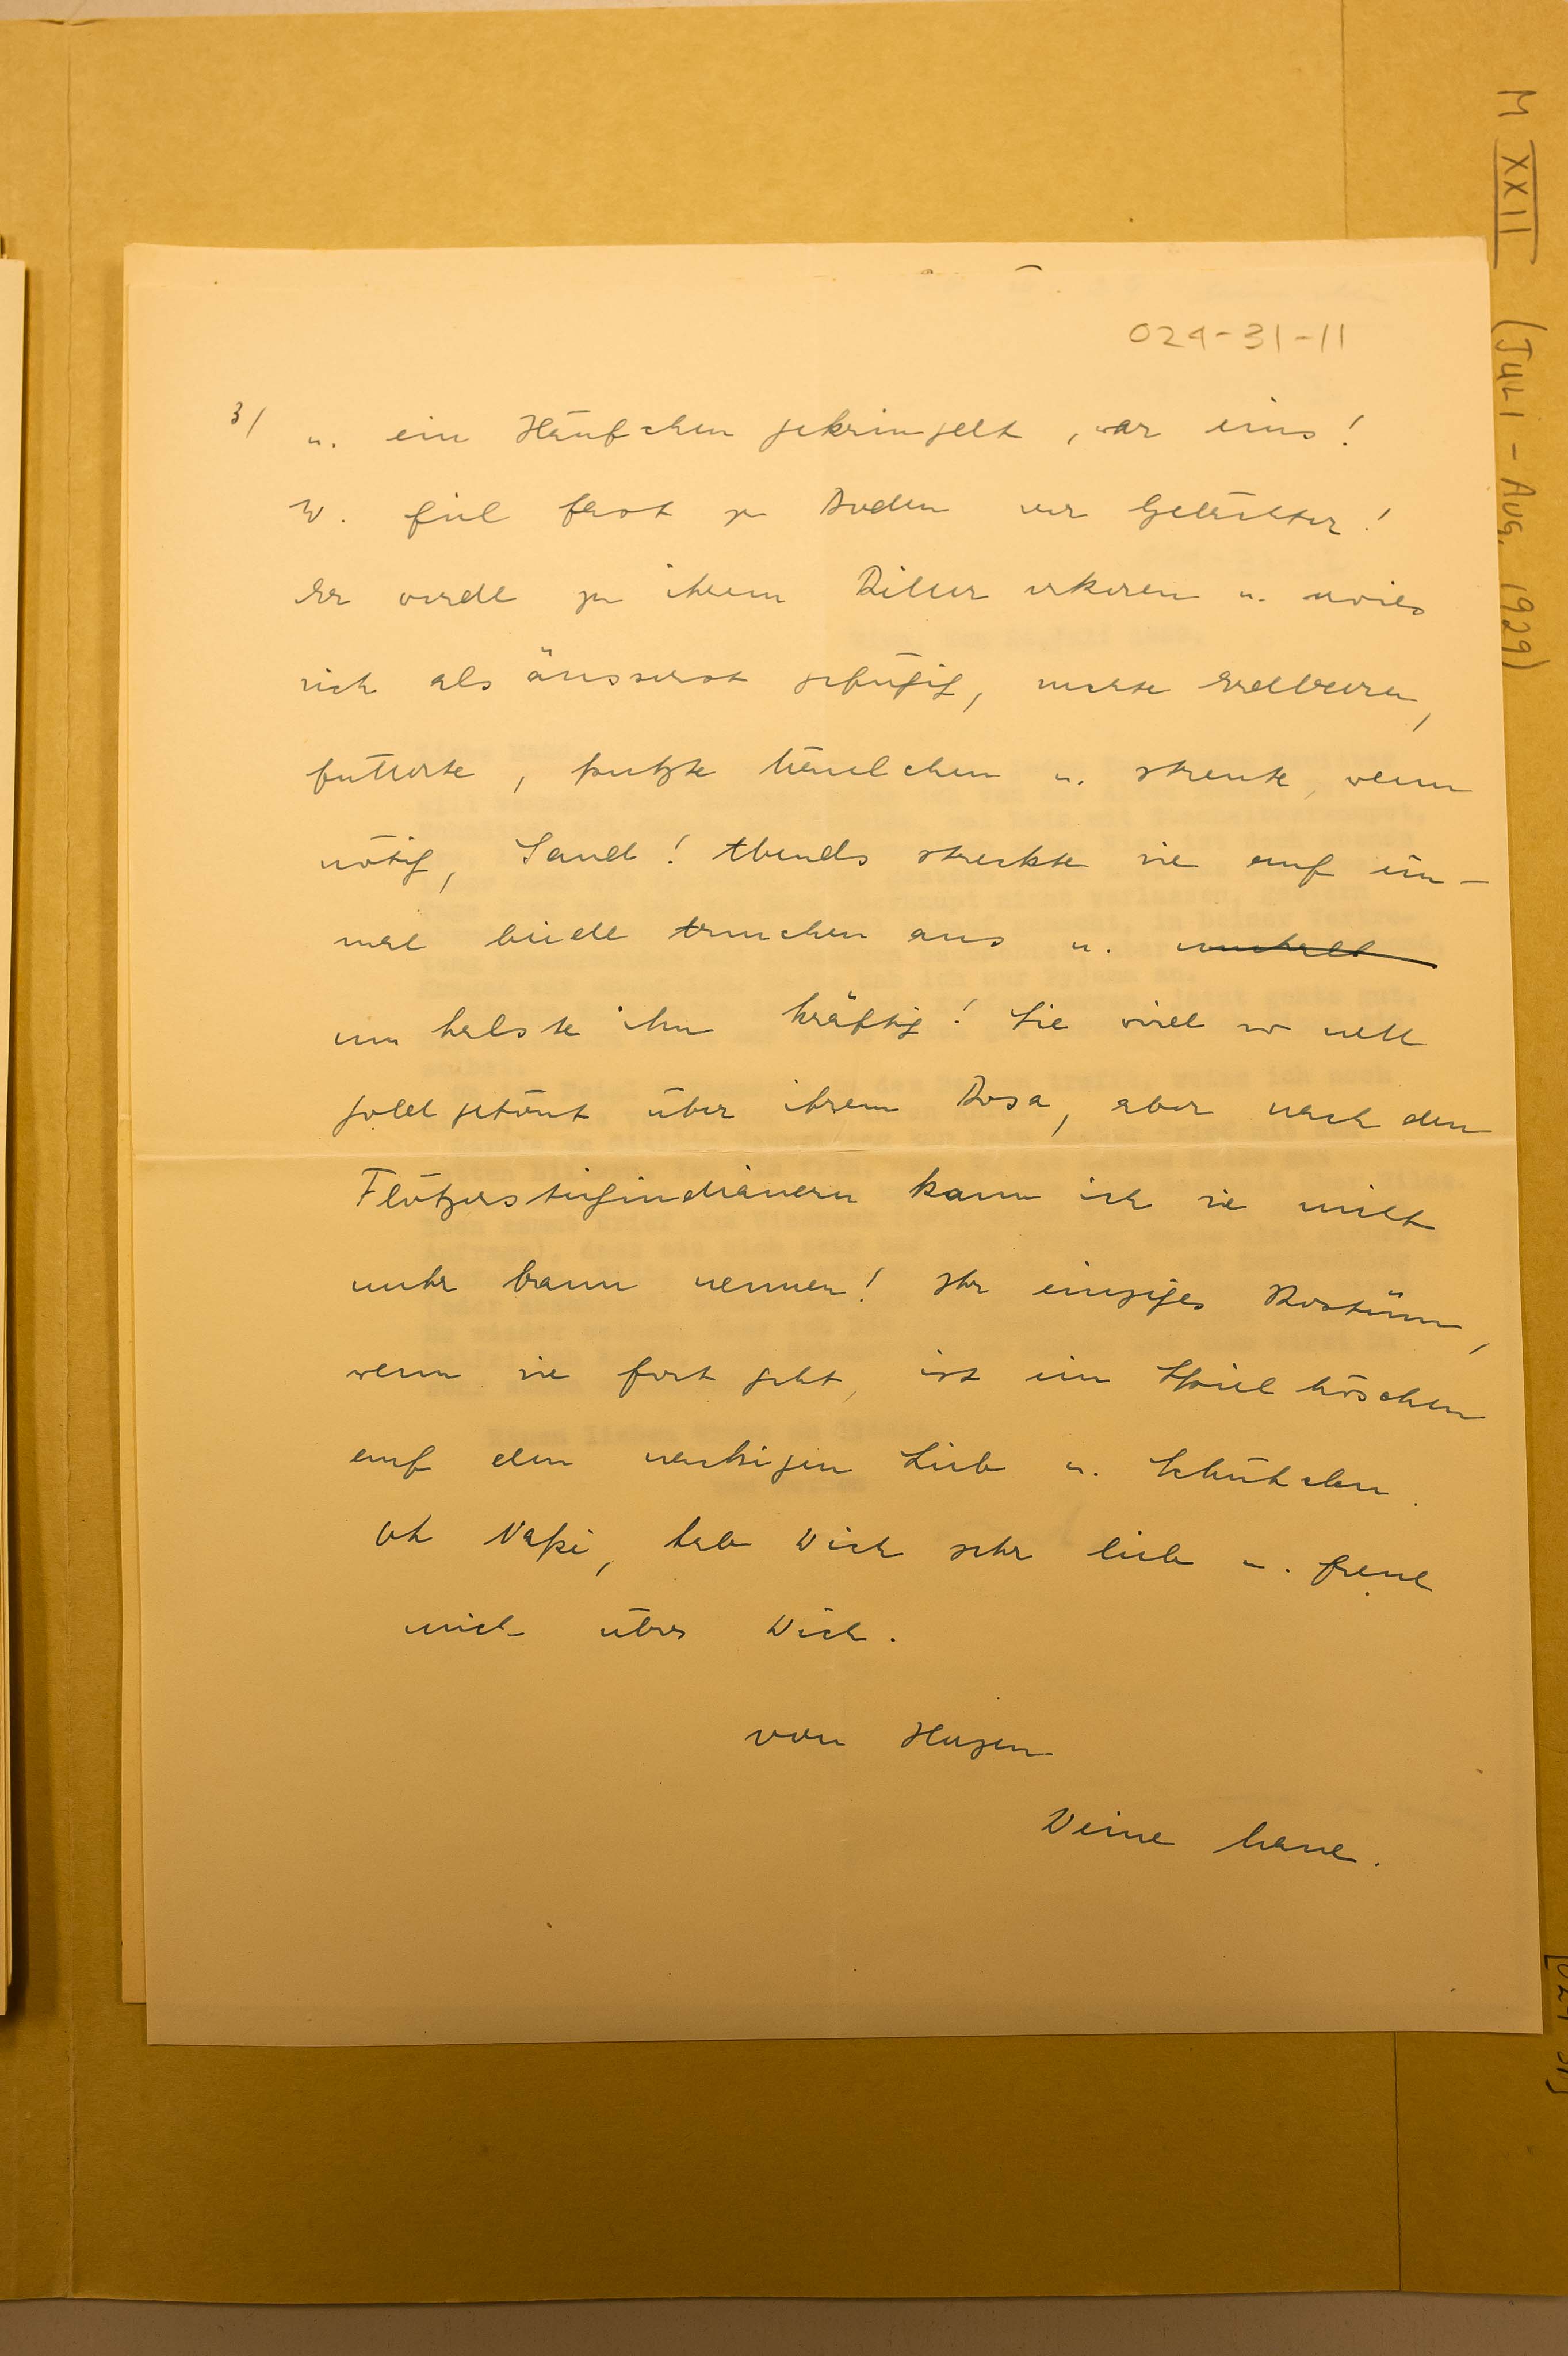 M XXII (JULI - AUG. 1929)
024-31-11
3/ u. ein Häufchen gekringelt, war eins!
W. fiel fast zu Boden vor Gelächter!
Er wurde zu ihrem Ritter erkoren u. erwies
sich als äusserst gefügig, suchte Erdbeeren,
futterte, putzte Händchen u. streute, wenn
nötig, Sand! Abends streckte sie auf ein-
mal beide Ärmchen aus u.
um halste ihn kräftig! Sie wird so nett
goldgetönt über ihrem Rosa, aber nach den
Flötzersteigindianern kann ich sie nicht
mehr braun nennen! Ihr einziges Kostüm,
wenn sie fort geht, ist ein Spielhöschen
auf dem nackigen Leib u. Schühchen.
Oh Napi, hab Dich sehr lieb u. freue
mich über Dich.
von Herzen
Deine